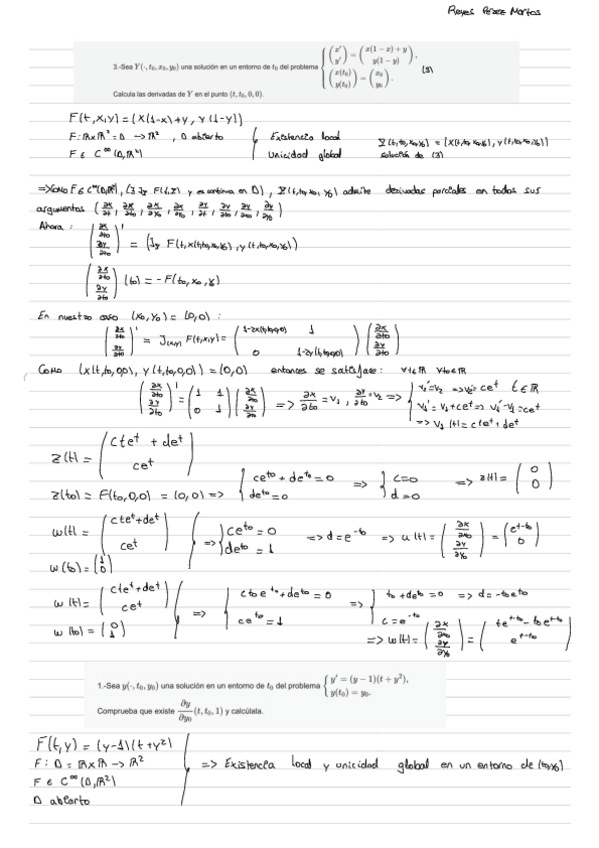 Reyes Pérez Martos
3.-Sea Y(·, t₀, x₀, y₀) una solución en un entorno de t₀ del problema { (x' ; y') = (x(1 − x) + y ; y(1 − y)), (x(t₀) ; y(t₀)) = (x₀ ; y₀). (3)
Calcula las derivadas de Y en el punto (t, t₀, 0, 0).
F(t,x,y) = (x(1-x)+y, y(1-y))
F: ℝxℝ² = D → ℝ², D abierto } Existencia local
F ∈ C^∞(D,ℝ²) } Unicidad global solución de (3)
=> Como F ∈ C^∞(D,ℝ²), y es continua en D), admite derivadas parciales en todos sus
argumentos (∂x/∂t, ∂x/∂t₀, ∂x/∂x₀, ∂x/∂y₀, ∂y/∂t, ∂y/∂t₀, ∂y/∂x₀, ∂y/∂y₀)
Ahora: (∂x/∂t₀ ; ∂y/∂t₀)' = (Jy F(t,x(t,t₀,x₀,y₀), y(t,t₀,x₀,y₀))
(∂x/∂t₀ ; ∂y/∂t₀)(t₀) = -F(t₀,x₀,y₀)
En nuestro caso (x₀,y₀) = (0,0):
(∂x/∂t₀ ; ∂y/∂t₀)' = J(x,y) F(t,x,y) = (1-2x(t,t₀,0,0) 1 ; 0 1-2y(t,t₀,0,0)) (∂x/∂t₀ ; ∂y/∂t₀)
Como (x(t,t₀,0,0), y(t,t₀,0,0)) = (0,0) entonces se satisface: ∀t∈ℝ ∀t₀∈ℝ
(∂x/∂t₀ ; ∂y/∂t₀)' = (1 1 ; 0 1)(∂x/∂t₀ ; ∂y/∂t₀) => ∂x/∂t₀ = v₁, ∂y/∂t₀ = v₂ => { v₂' = v₂ => v₂ = ce^t t∈ℝ
v₁' = v₁ + ce^t => v₁' - v₁ = ce^t
=> v₁(t) = cte^t + de^t
z(t) = (cte^t + de^t ; ce^t)
z(t₀) = F(t₀,0,0) = (0,0) => { ce^t₀ + de^t₀ = 0 ; de^t₀ = 0 => { c=0 ; d=0 => z(t) = (0 ; 0)
w(t) = (cte^t + de^t ; ce^t)
w(t₀) = (1 ; 0) => { ce^t₀ = 0 ; de^t₀ = 1 => d = e^-t₀ => u(t) = (∂x/∂x₀ ; ∂y/∂x₀) = (e^t-t₀ ; 0)
w(t) = (cte^t + de^t ; ce^t)
w(t₀) = (0 ; 1) => { ct₀e^t₀ + de^t₀ = 0 ; ce^t₀ = 1 => { t₀ + de^t₀ = 0 => d = -t₀e^-t₀ ; c = e^-t₀
=> w(t) = (∂x/∂y₀ ; ∂y/∂y₀) = (te^t-t₀ - t₀e^t-t₀ ; e^t-t₀)
1.-Sea y(·, t₀, y₀) una solución en un entorno de t₀ del problema { y' = (y − 1)(t + y²), y(t₀) = y₀.
Comprueba que existe ∂y/∂y₀ (t, t₀, 1) y calcúlala.
F(t,y) = (y-1)(t+y²)
F: D = ℝxℝ → ℝ² => Existencia local y unicidad global en un entorno de (t₀,y₀)
F ∈ C^∞(D,ℝ²)
D abierto